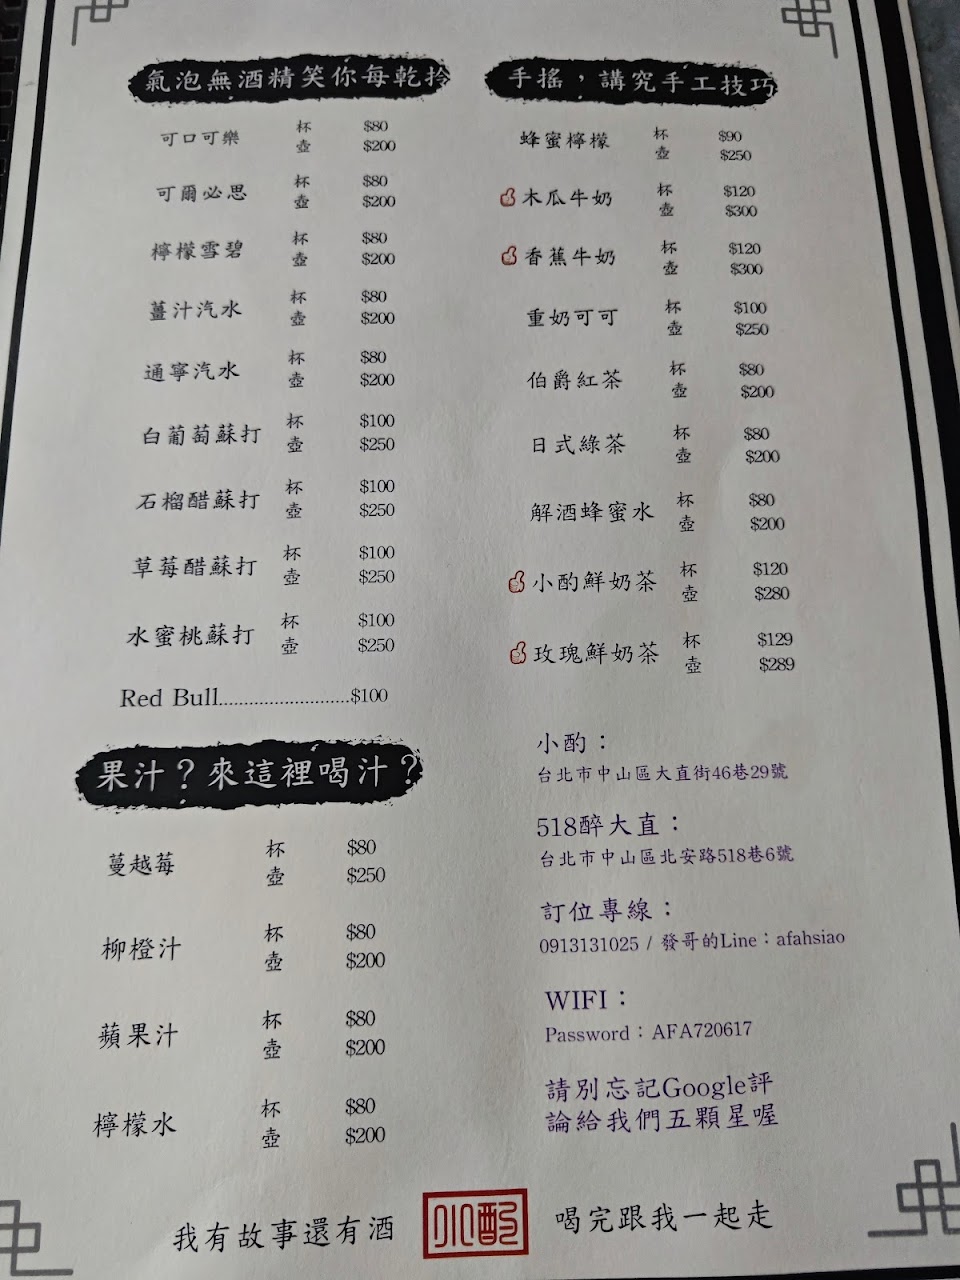 氣泡無酒精笑你每乾拎
可口可樂 杯 $80
壺 $200
可爾必思 杯 $80
壺 $200
檸檬雪碧 杯 $80
壺 $200
薑汁汽水 杯 $80
壺 $200
通寧汽水 杯 $80
壺 $200
白葡萄蘇打 杯 $100
壺 $250
石榴醋蘇打 杯 $100
壺 $250
草莓醋蘇打 杯 $100
壺 $250
水蜜桃蘇打 杯 $100
壺 $250
Red Bull..........................$100
果汁？來這裡喝汁？
蔓越莓 杯 $80
壺 $250
柳橙汁 杯 $80
壺 $200
蘋果汁 杯 $80
壺 $200
檸檬水 杯 $80
壺 $200
手搖，講究手工技巧
蜂蜜檸檬 杯 $90
壺 $250
木瓜牛奶 杯 $120
壺 $300
香蕉牛奶 杯 $120
壺 $300
重奶可可 杯 $100
壺 $250
伯爵紅茶 杯 $80
壺 $200
日式綠茶 杯 $80
壺 $200
解酒蜂蜜水 杯 $80
壺 $200
小酌鮮奶茶 杯 $120
壺 $280
玫瑰鮮奶茶 杯 $129
壺 $289
小酌：
台北市中山區大直街46巷29號
518醉大直：
台北市中山區北安路518巷6號
訂位專線：
0913131025 / 發哥的Line：afahsiao
WIFI：
Password：AFA720617
請別忘記Google評
論給我們五顆星喔
我有故事還有酒 小酌 喝完跟我一起走